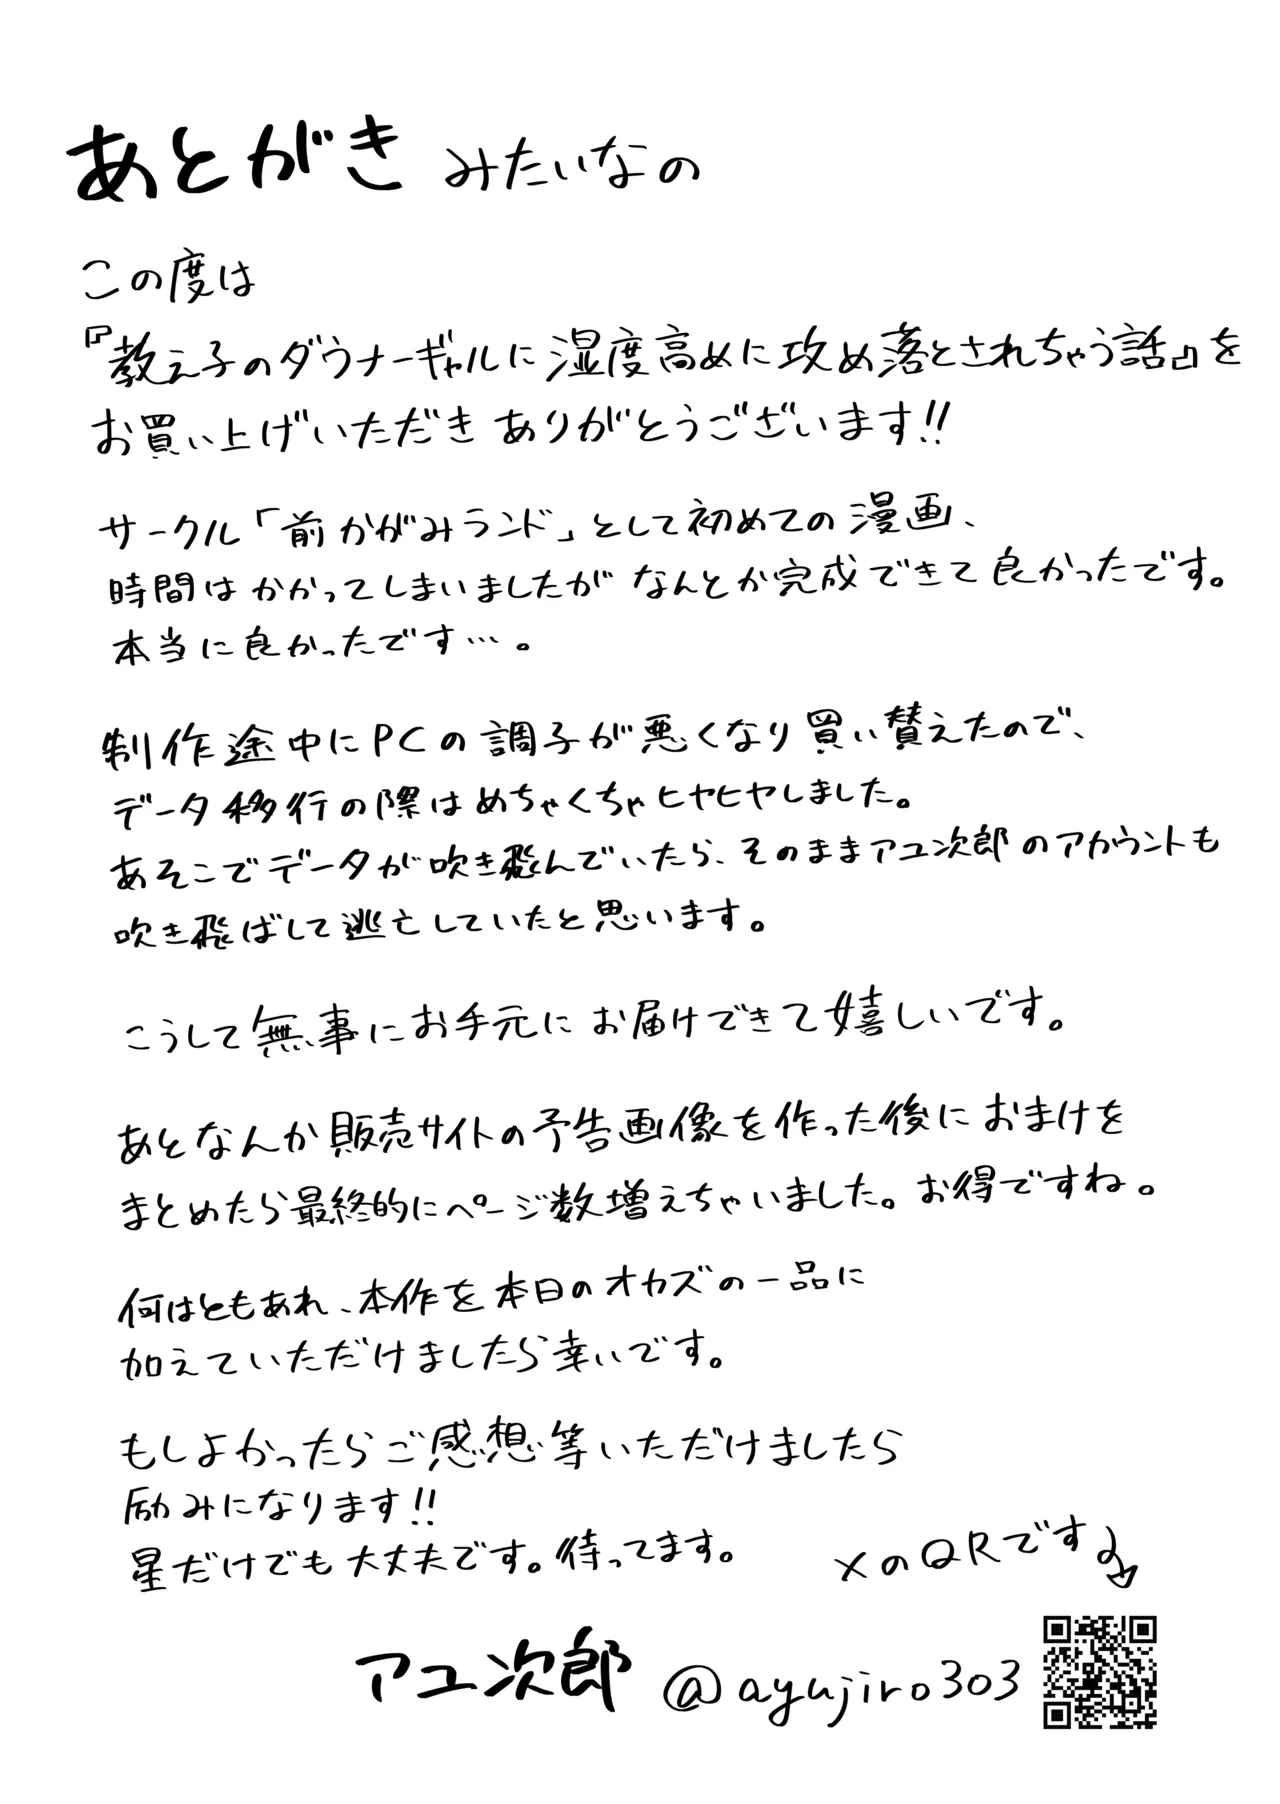 あとがき みたいなの
この度は
『教え子のダウナーギャルに湿度高めに攻め落とされちゃう話』を
お買い上げいただき ありがとうございます!!
サークル「前かがみランド」として初めての漫画、
時間はかかってしまいましたが なんとか完成できて良かったです。
本当に良かったです…。
制作途中にPCの調子が悪くなり買い替えたので、
データ移行の際はめちゃくちゃヒヤヒヤしました。
あそこでデータが吹き飛んでいたら、そのままアユ次郎のアカウントも
吹き飛ばして逃亡していたと思います。
こうして無事にお手元にお届けできて嬉しいです。
あとなんか販売サイトの予告画像を作った後におまけを
まとめたら最終的にページ数増えちゃいました。お得ですね。
何はともあれ、本作を本日のオカズの一品に
加えていただけましたら幸いです。
もしよかったらご感想等いただけましたら
励みになります!!
星だけでも大丈夫です。待ってます。
XのQRです
アユ次郎 @ayujiro303